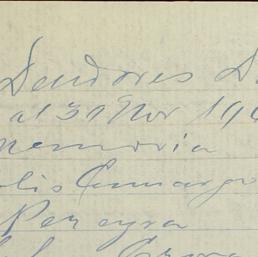 Deudores D
al 31 Nov 190
memoria
lis Camargo
Pereyra